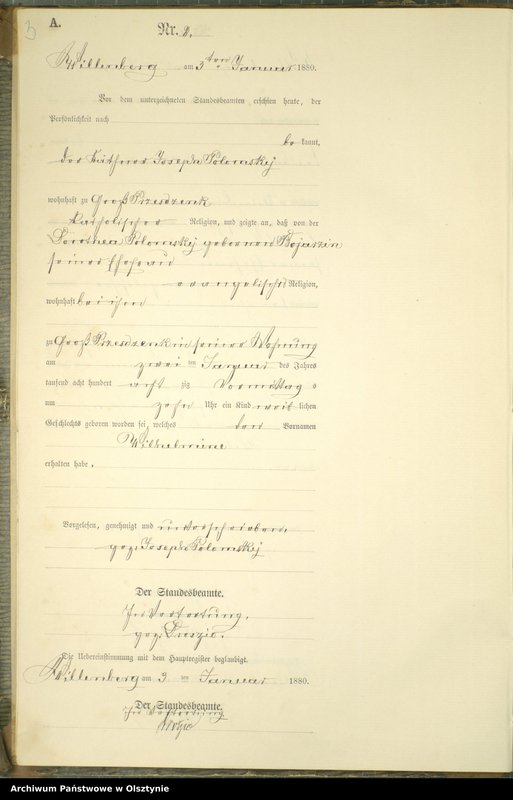 3
A.
Nr. 2.
Willenberg am 3ten Januar 1880.
Vor dem unterzeichneten Standesbeamten erschien heute, der
Persönlichkeit nach
be kannt,
der Käthner Joseph Polomsky
wohnhaft zu Groß Przesdzenk
katholischer Religion, und zeigte an, daß von der
Dorothea Polomsky geborenen Bojarzin
seiner Ehefrau
evangelischer Religion,
wohnhaft bei ihm
zu Groß Przesdzenk in seiner Wohnung
am zwei ten Januar des Jahres
tausend acht hundert acht zig Vormittag s
um zehn Uhr ein Kind weib lichen
Geschlechts geboren worden sei, welches den Vornamen
Wilhelmine
erhalten habe.
Vorgelesen, genehmigt und unterschrieben,
gez. Joseph Polomskÿ
Der Standesbeamte.
In Vertretung.
gez.
Die Uebereinstimmung mit dem Hauptregister beglaubigt.
Willenberg am 3 ten Januar 1880.
Der Standesbeamte.
In Vertretung
Archiwum Państwowe w Olsztynie